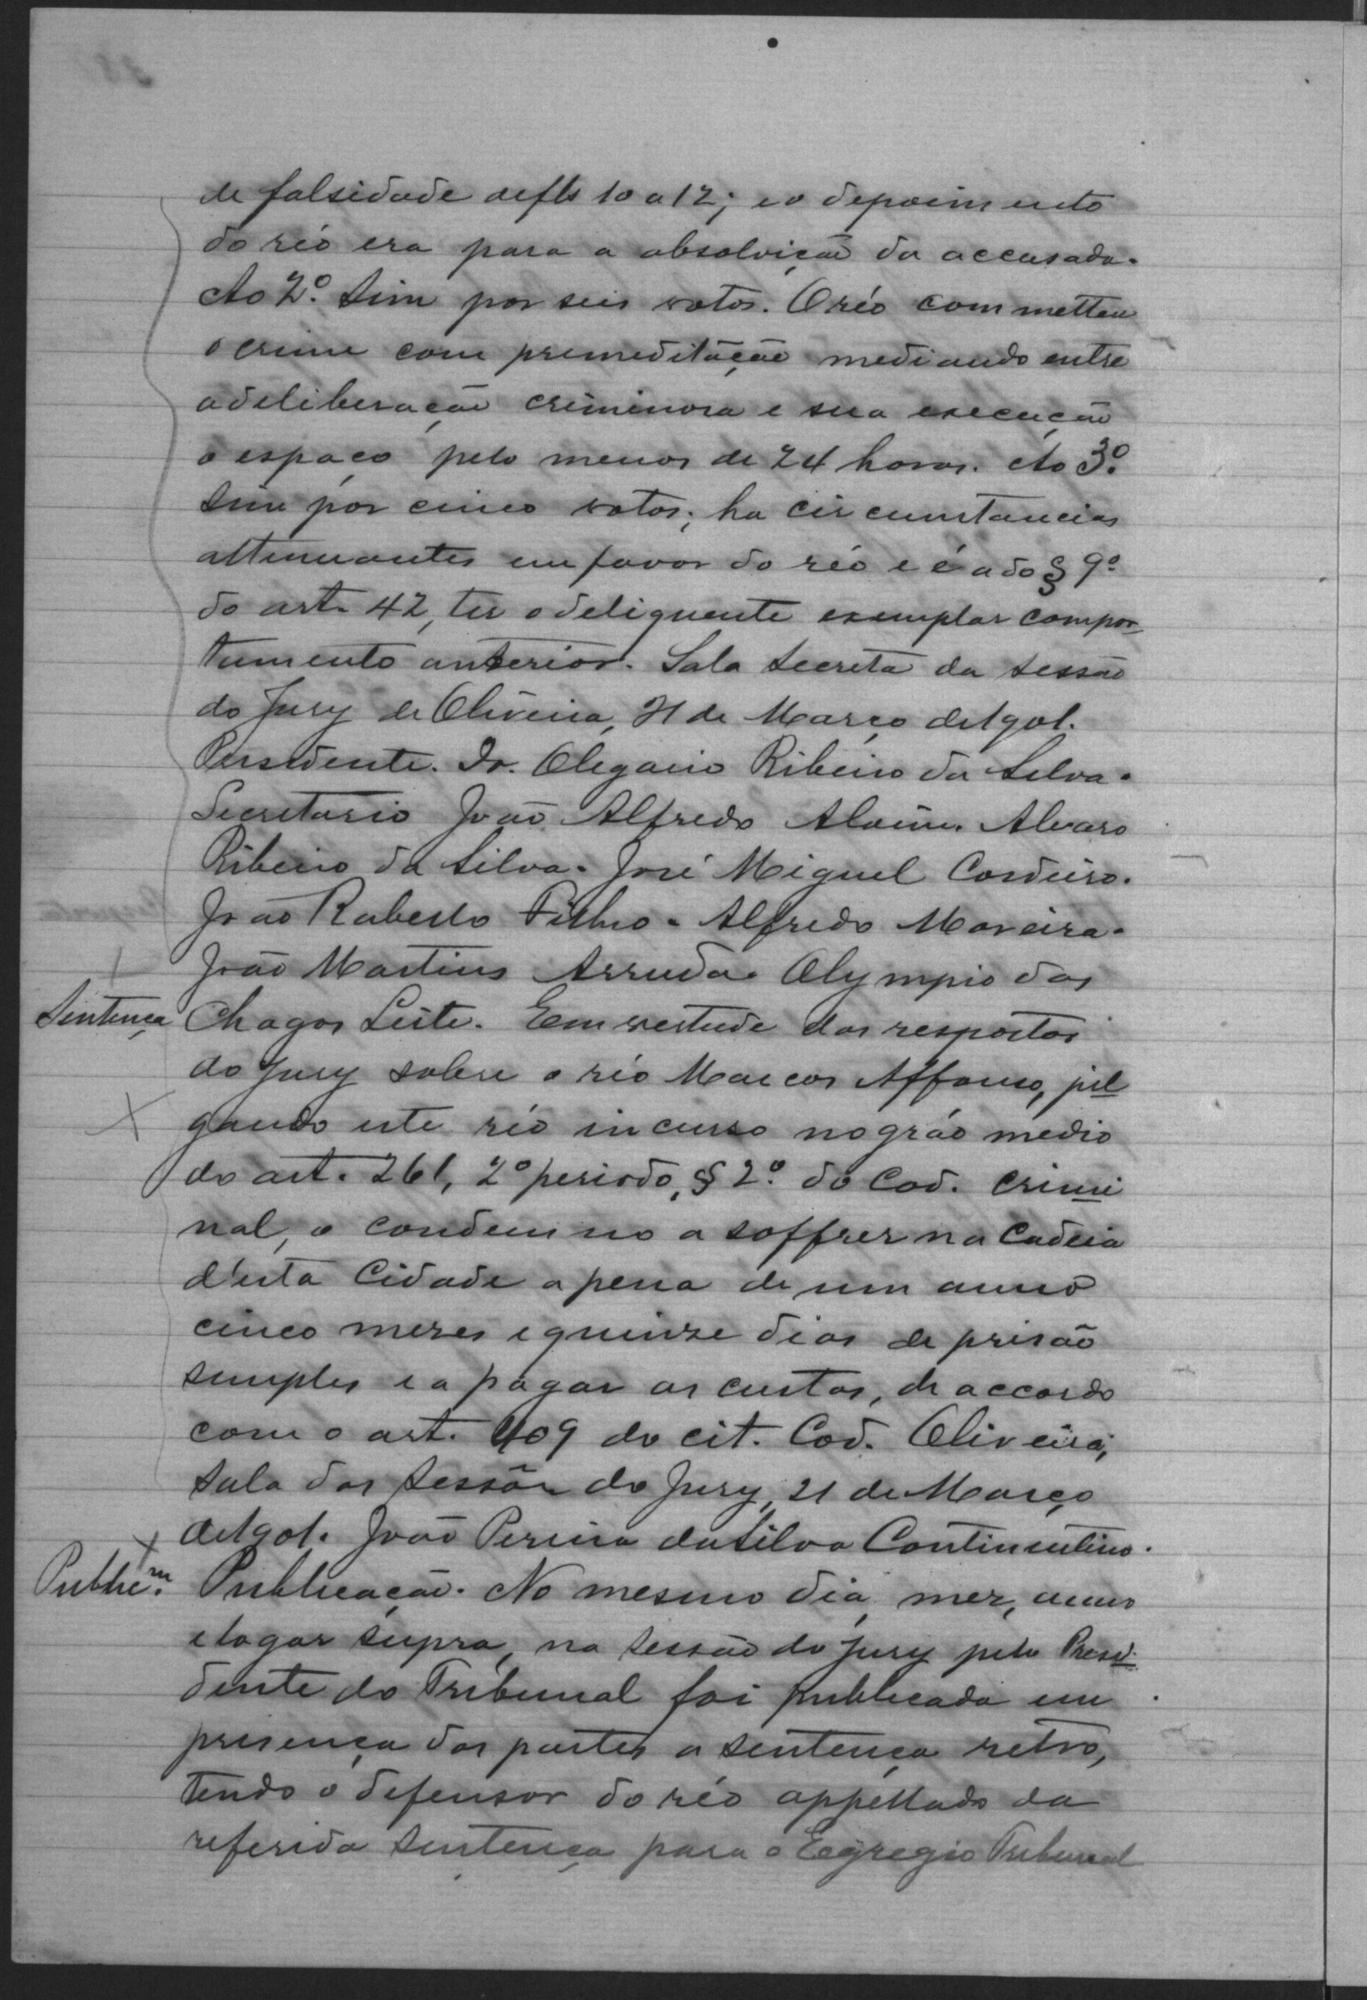 de falsidade de fls 10 a 12; e o depoimento
do réo era para a absolvição da accusada.
Ao 2º. Sim por seis votos. O réo commetteu
o crime com premeditação mediando entre
a deliberação criminosa e sua execução
o espaço pelo menos de 24 horas. Ao 3º.
Sim por cinco votos; ha circumstancias
attenuantes em favor do réo e é a do § 9º
do art. 42, ter o deliquente exemplar compor-
tamento anterior. Sala secreta da sessão
do Jury de Oliveira, 21 de Março de 1901.
Presidente. Dr. Olegario Ribeiro da Silva.
Secretario João Alfredo Alvim. Alvaro
Ribeiro da Silva. José Miguel Cordeiro.
João Roberto Filho. Alfredo Moreira.
João Martins Arruda. Olympio das
Sentença Chagas Leite. Em vertude das respostas
do Jury sobre o réo Marcos Affonso, jul
gando este réo incurso no gráo medio
do art. 261, 2º periodo, § 2º. do Cod. Crimi
nal, o condemno a soffrer na Cadeia
d'esta Cidade a pena de um anno
cinco mezes e quinze dias de prisão
simples e a pagar as custas, de accordo
com o art. 409 do cit. Cod. Oliveira,
sala das sessões do Jury, 21 de Março
de 1901. João Pereira da Silva Continentino.
Publicm. Publicação. No mesmo dia, mez, anno
e logar supra, na sessão do Jury pelo Presi
dente do Tribunal foi publicada em
presença das partes a sentença retro,
tendo o defensor do réo appellado da
referida sentença para o Egregio Tribunal